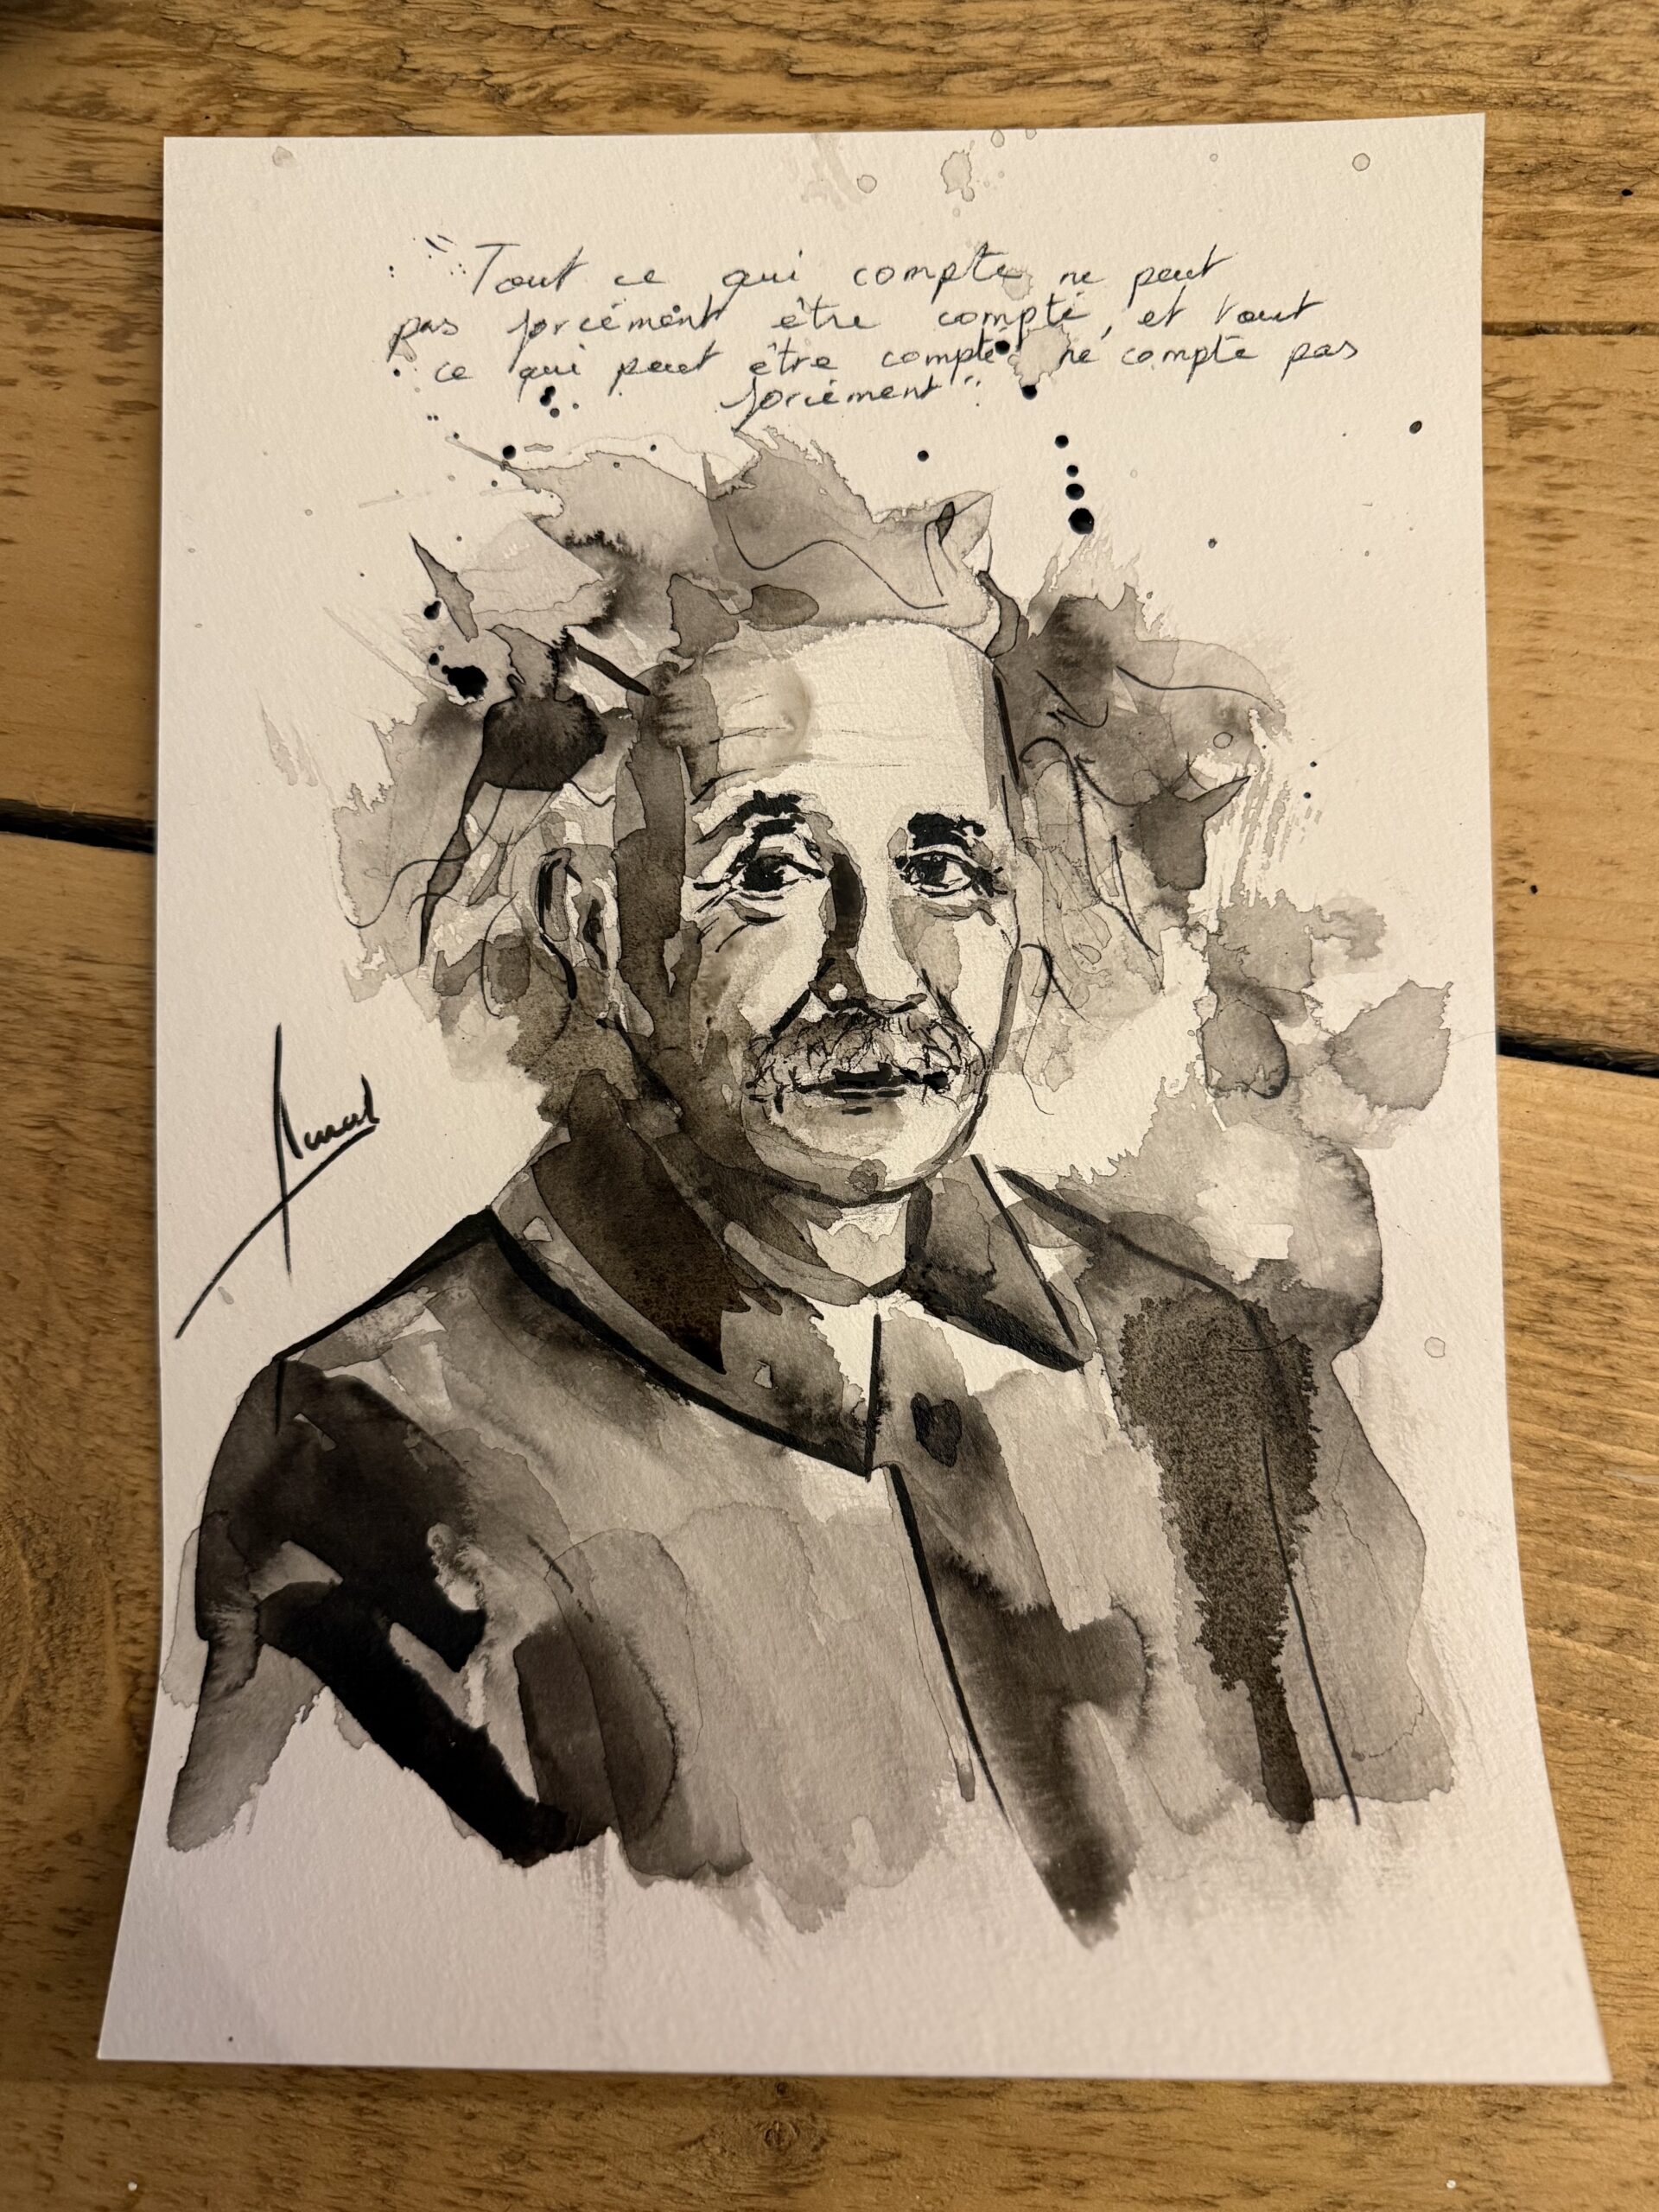 "Tout ce qui compte ne peut
pas forcément être compté, et tout
ce qui peut être compté ne compte pas
forcément"